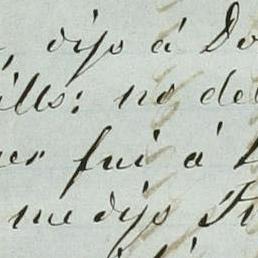 , dijo á Do
ills: no de
er fui á
me dijo Fr